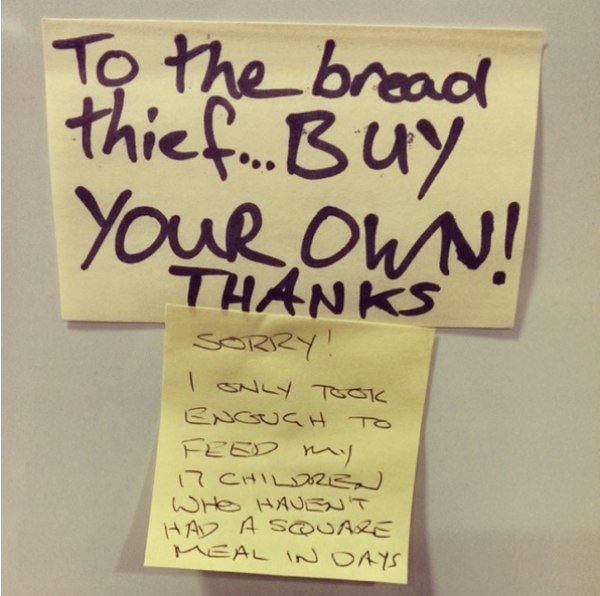 To the bread
thief...BUY
YOUR OWN!
THANKS
SORRY!
I ONLY TOOK
ENOUGH TO
FEED MY
17 CHILDREN
WHO HAVEN'T
HAD A SQUARE
MEAL IN DAYS